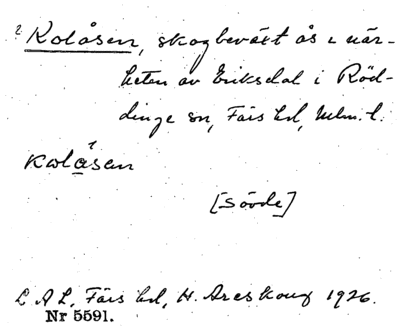 ? Kolåsen, skogbeväxt ås i när-
heten av Eriksdal i Röd-
dinge sn, Färs hd, Mlm. l.
kolåsen
[Sövde]
L A L, Färs hd, H. Areskoug 1926.
Nr 5591.